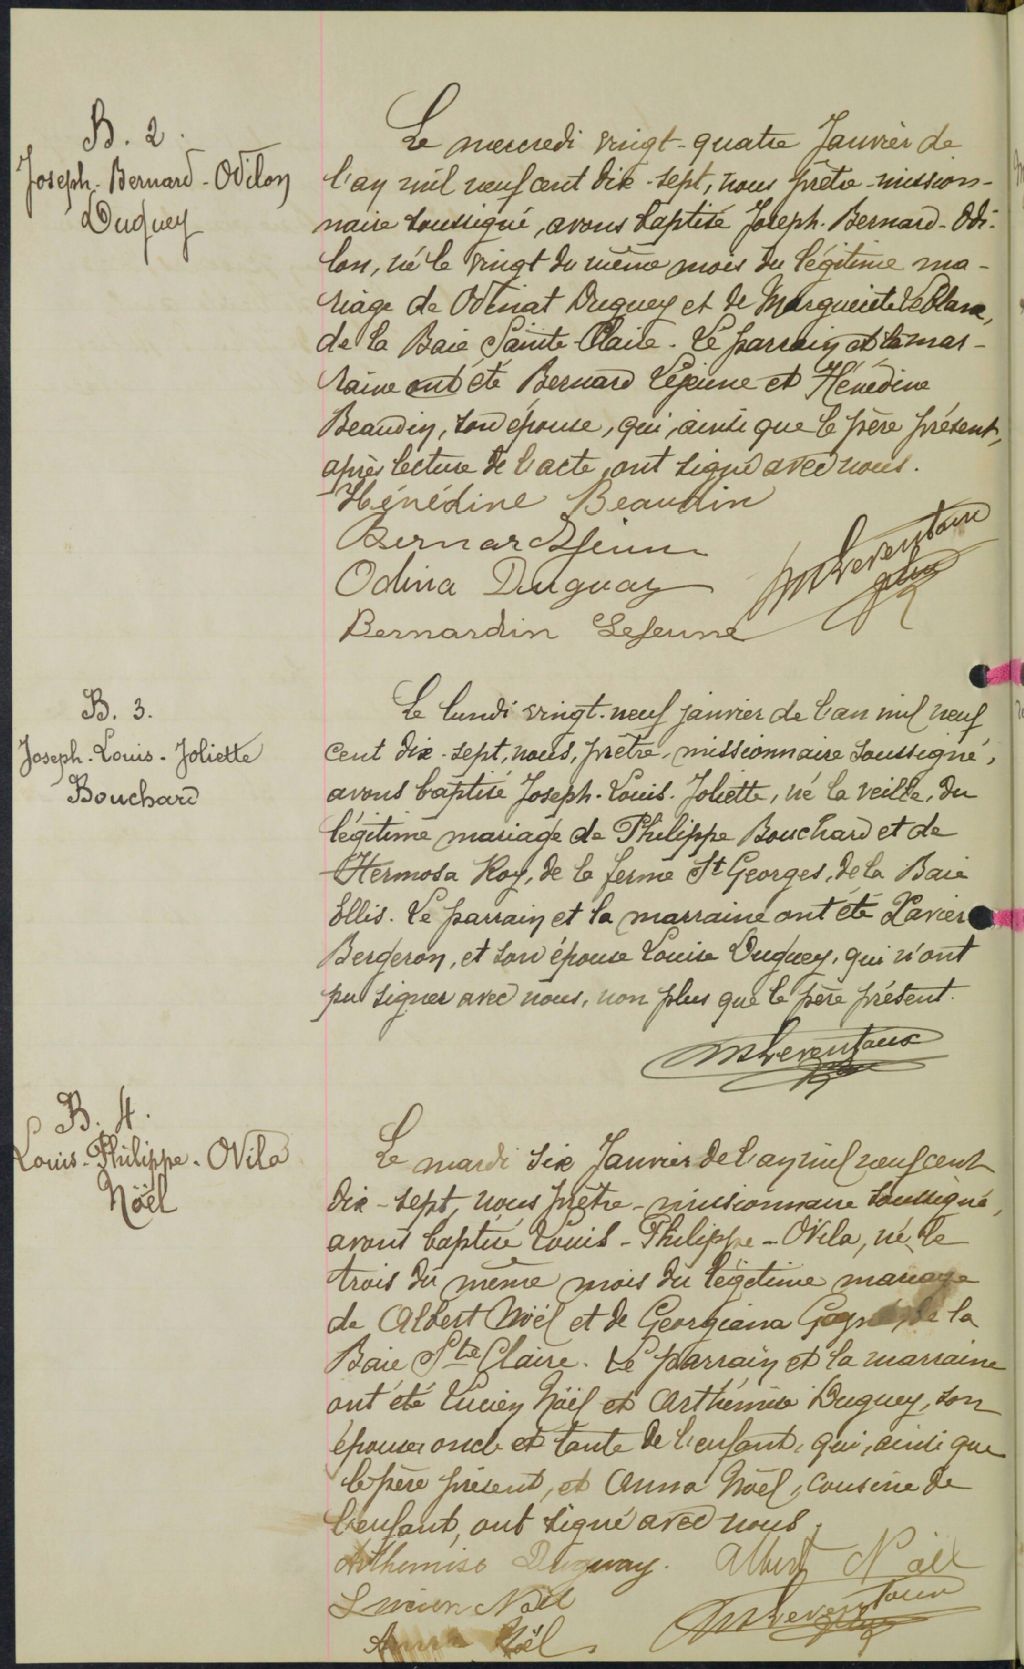 B. 2.
Joseph-Bernard-Odilon
Duguey
Le mercredi vingt-quatre Janvier de
l'an mil neuf cent dix-sept, nous prêtre mission-
naire soussigné, avons baptisé Joseph-Bernard-Odi-
lon, né le vingt du même mois du légitime ma-
riage de Odinat Duguey et de Marguerite LeBlanc,
de la Baie Sainte-Claire. Le parrain et la mar-
raine ont été Bernard Lejeune et Hénédine
Beaudin, son épouse, qui, ainsi que le père présent,
après lecture de l'acte, ont signé avec nous.
Hénédine Beaudin
Bernard Lejeune
Odina Duguay
Bernardin Lejeune
B. 3.
Joseph-Louis-Joliette
Bouchard
Le lundi vingt-neuf janvier de l'an mil neuf
cent dix-sept, nous, prêtre-missionnaire soussigné,
avons baptisé Joseph-Louis-Joliette, né la veille, du
légitime mariage de Philippe Bouchard et de
Hermosa Roy, de la ferme St Georges, de la Baie
Ellis. Le parrain et la marraine ont été Xavier
Bergeron, et son épouse Louise Duguey, qui n'ont
pu signer avec nous, non plus que le père présent.
B. 4.
Louis-Philippe-Ovila
Noël
Le mardi six Janvier de l'an mil neuf cent
dix-sept, nous prêtre-missionnaire soussigné,
avons baptisé Louis-Philippe-Ovila, né le
trois du même mois du légitime mariage
de Albert Noël et de Georgiana de la
Baie Ste Claire. Le parrain et la marraine
ont été Lucien Noël et Arthémise Duguey, son
épouse, oncle et tante de l'enfant, qui, ainsi que
le père présent, et Anna Noël, cousine de
l'enfant, ont signé avec nous.
Arthemise Duguay. Albert Noël
Lucien Noël
Anna Noël